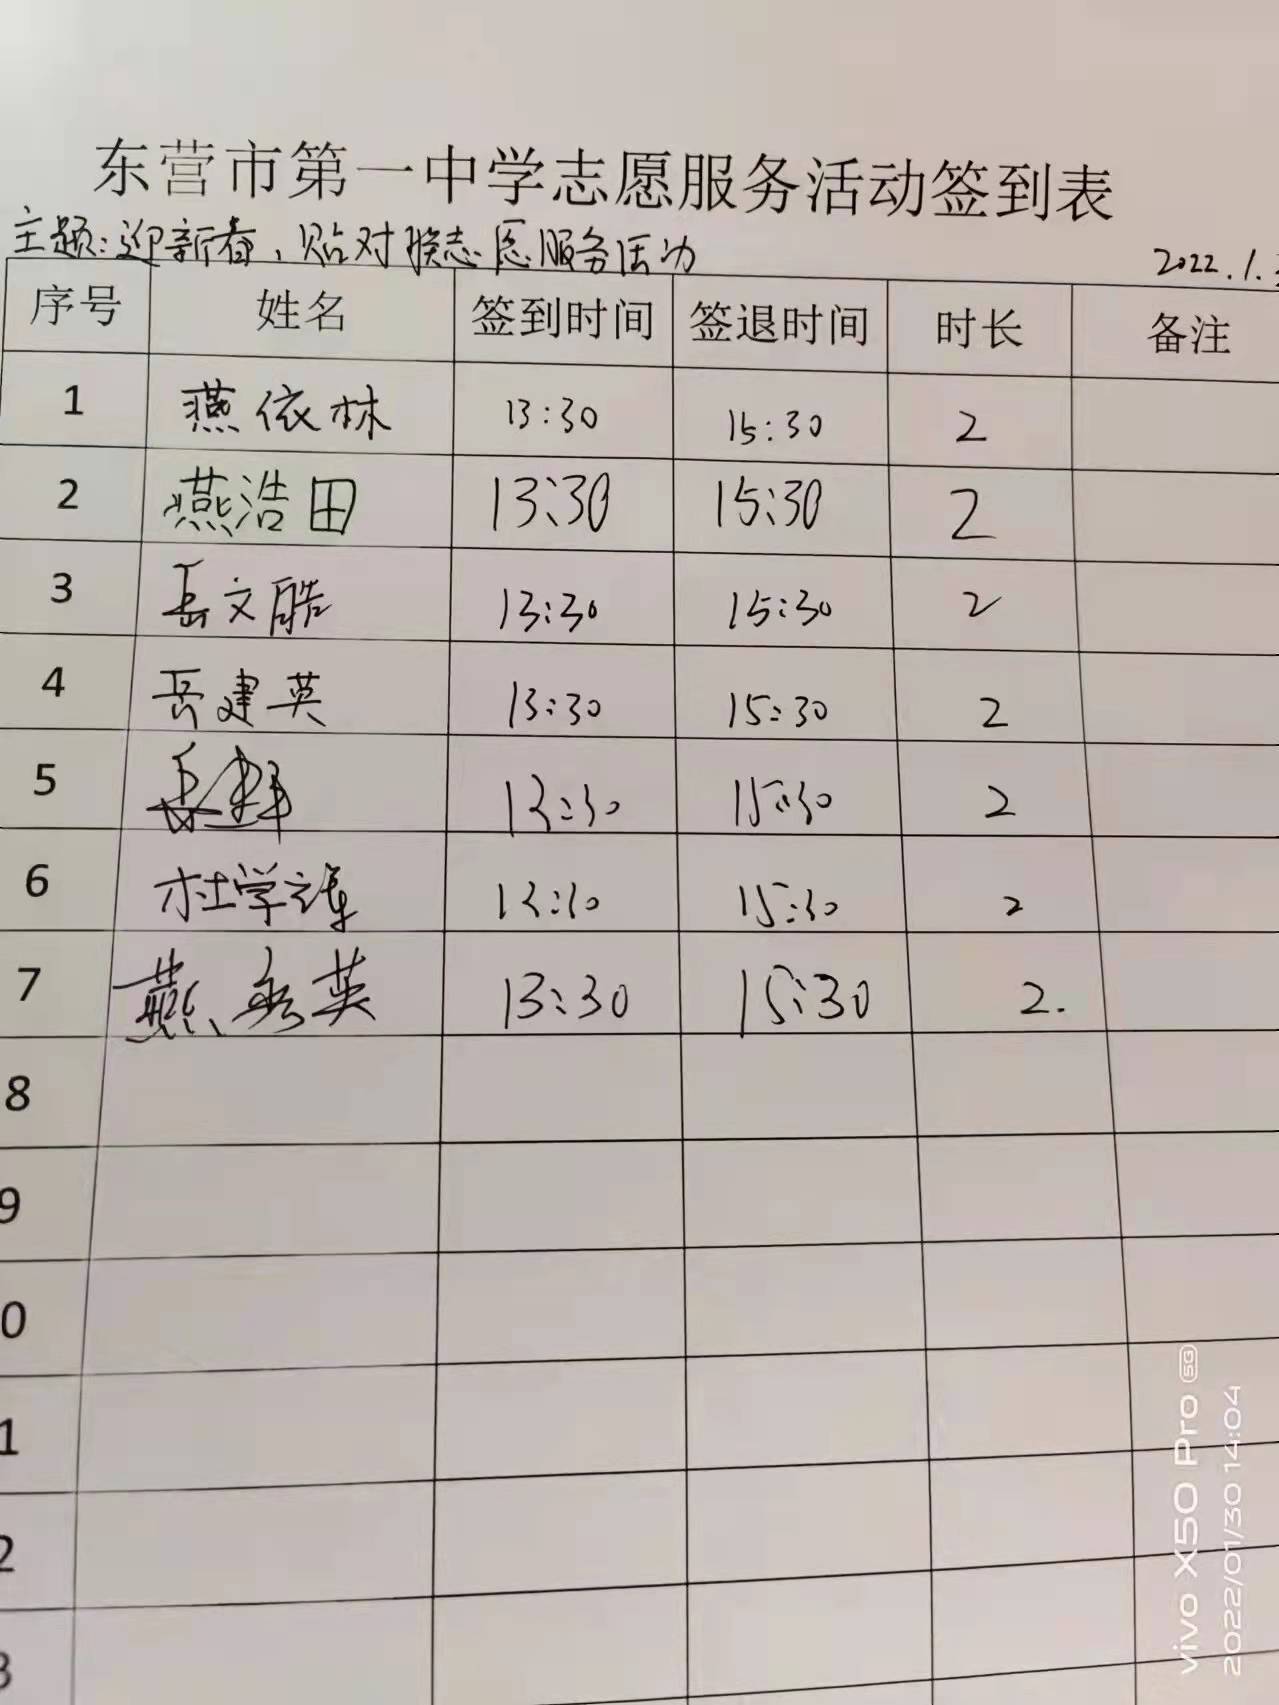 东营市第一中学志愿服务活动签到表
主题:迎新春,贴对联志愿服务活动
2022.1.
序号 姓名 签到时间 签退时间 时长 备注
1 燕依林 13:30 15:30 2
2 燕浩田 13:30 15:30 2
3 岳文皓 13:30 15:30 2
4 岳建英 13:30 15:30 2
5 13:30 15:30 2
6 杜学 13:30 15:30 2
7 燕秀英 13:30 15:30 2.
8
9
0
1
2
3
vivo X50 Pro 5G
2022/01/30 14:04